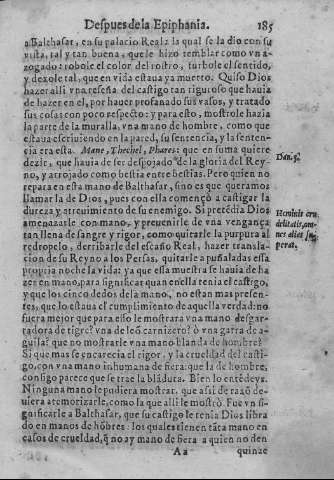 Despues de la Epiphania. 185
a Balthasar, en su palacio Real: a la qual se la dio con su
vista, tal y tan buena, que le hizo temblar como vn a-
zogado: robole el color del rostro, turbole el sentido,
y dexole tal, que en vida estaua ya muerto. Quiso Dios
hazer alli vna reseña del castigo tan riguroso que hauia
de hazer en el, por hauer profanado sus vasos, y tratado
sus cosas con poco respecto: y para esto, mostrole hazia
la parte de la muralla, vna mano de hombre, como que
estaua escriuiendo en la pared, su sentencia, y la senten-
cia era esta. Mane, Thechel, Phares: que en suma quiere
dezir, que hauia de ser despojado de la gloria del Rey-
no, y arrojado como bestia entre bestias. Pero quien no
repara en esta mano de Balthasar, sino es que queramos
llamarla de Dios, pues con ella començò a castigar la
dureza y atreuimiento de su enemigo. Si pretédia Dios
amenazarle con mano, y preuenirle de vna vengança
tan llena de sangre y rigor, como quitarle la purpura al
redropelo, derribarle del escaño Real, hazer transla-
cion de su Reyno a los Persas, quitarle a puñaladas essa
propria noche la vida: ya que essa muestra se hauia de
hazer en mano, para significar quan en ella tenia el castigo,
y que los cinco dedos de la mano, no estan mas presen-
tes, que lo estaua el cumplimiento de aquella verdad: no
fuera mejor que para esso le mostrara vna mano desgar-
radora de tigre? vna de leõ carnizero? ò vna garra de a-
guila? que no mostrarle vna mano blanda de hombre?
Si que mas se encarecia el rigor, y la crueldad del casti-
go, con vna mano inhumana de fiera: que la de hombre,
consigo parece que se trae la blãdura. Bien lo entédeys.
Ninguna mano le pudiera mostrar, que assi de razõ de-
uiera atemorizarle, como la que alli le mostrò. Fue vn si-
gnificarle a Balthasar, que su castigo le tenia Dios libra
do en manos de hõbres: los quales tienen tãta mano en
casos de crueldad, q̃ no ay mano de fiera a quien no den
Aa quinze
Dan. 5.
Hominis cru
delitate, om-
nes alias su-
perat.